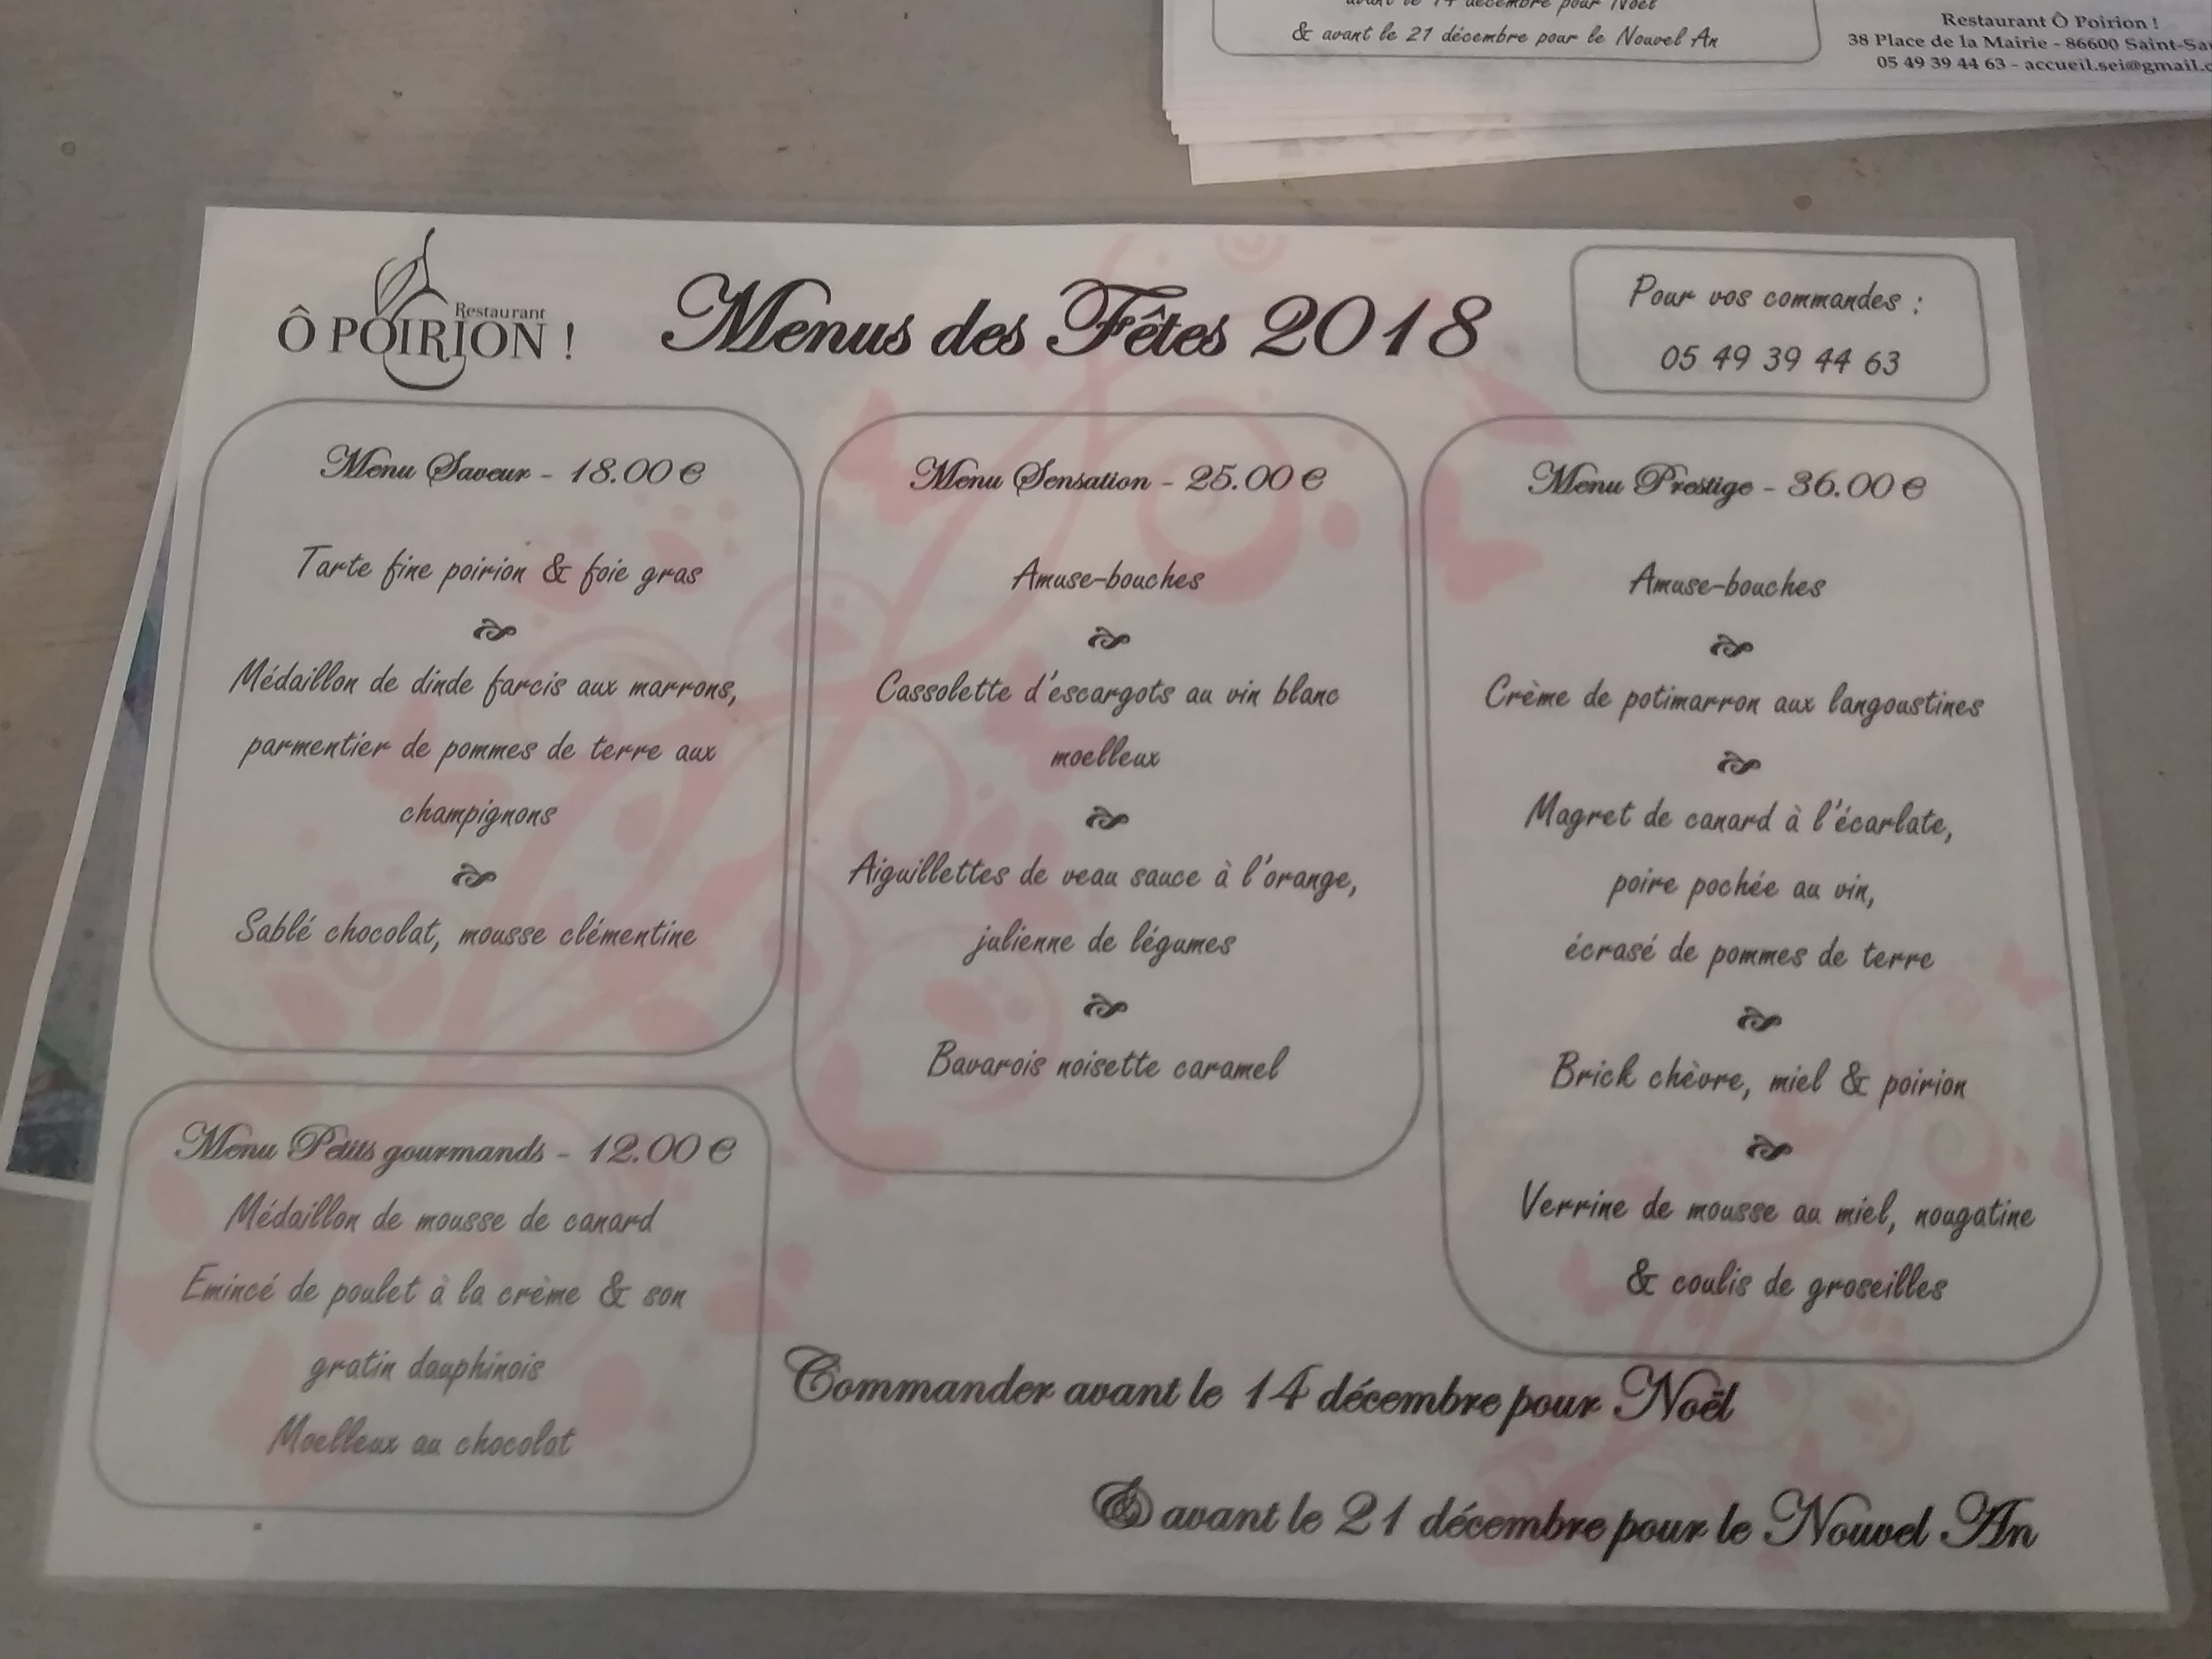 avant le 14 décembre pour Noël
& avant le 21 décembre pour le Nouvel An
Restaurant Ô Poirion !
38 Place de la Mairie - 86600 Saint-Sa
05 49 39 44 63 - accueil.sei@gmail.c
Restaurant
Ô POIRION !
Menus des Fêtes 2018
Pour vos commandes :
05 49 39 44 63
Menu Saveur - 18.00 €
Tarte fine poirion & foie gras
Médaillon de dinde farcis aux marrons,
parmentier de pommes de terre aux
champignons
Sablé chocolat, mousse clémentine
Menu Petits gourmands - 12.00 €
Médaillon de mousse de canard
Emincé de poulet à la crème & son
gratin dauphinois
Moelleux au chocolat
Menu Sensation - 25.00 €
Amuse-bouches
Cassolette d'escargots au vin blanc
moelleux
Aiguillettes de veau sauce à l'orange,
julienne de légumes
Bavarois noisette caramel
Menu Prestige - 36.00 €
Amuse-bouches
Crème de potimarron aux langoustines
Magret de canard à l'écarlate,
poire pochée au vin,
écrasé de pommes de terre
Brick chèvre, miel & poirion
Verrine de mousse au miel, nougatine
& coulis de groseilles
Commander avant le 14 décembre pour Noël
& avant le 21 décembre pour le Nouvel An